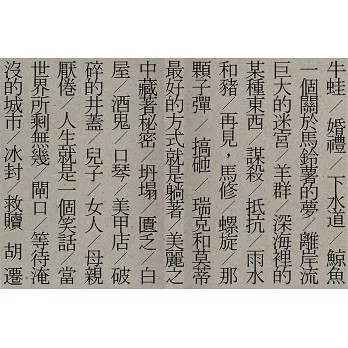 牛蛙╱婚禮╱下水道╱鯨魚
一個關於馬鈴薯的夢╱離岸流
巨大的迷宮╱羊群╱深海裡的
某種東西╱謀殺╱抵抗╱雨水
和豬╱再見，馬修╱螺旋╱那
顆子彈╱搞砸╱瑞克和莫蒂
最好的方式就是躺著╱美麗之
中藏著秘密╱坍塌╱匱乏╱白
屋╱酒鬼╱口琴╱美甲店╱破
碎的井蓋╱兒子╱女人╱母親
厭倦╱人生就是一個笑話╱當
世界所剩無幾╱閘口╱等待淹
沒的城市╱冰封╱救贖╱胡遷